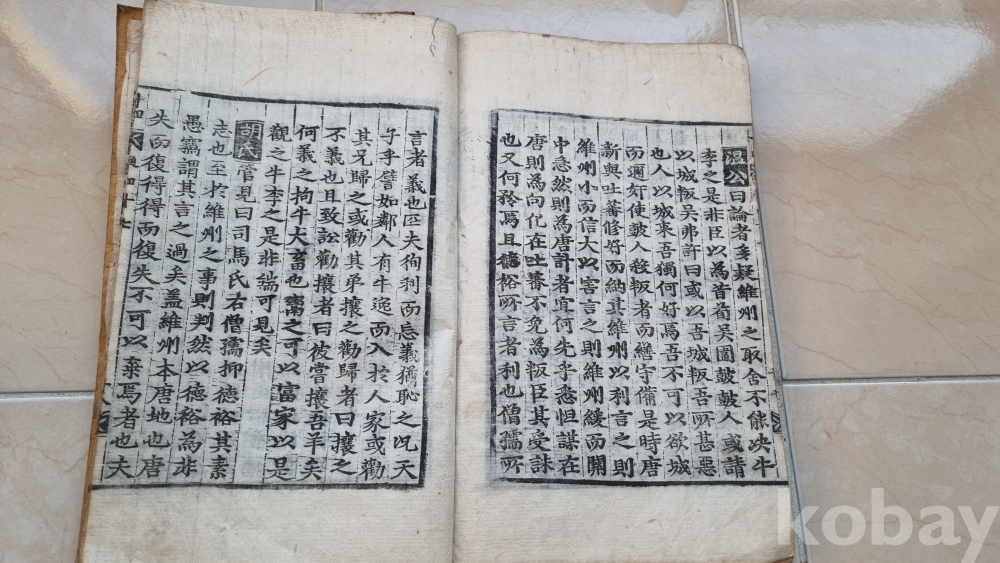 温公曰論者多疑維州之取舍不能决牛
李之是非臣以為昔荀吴圍鼓鼓人或請
以城叛吴弗許曰或以吾城叛吾所甚惡
也人以城来吾獨何好焉吾不可以欲城
而邇奸使鼓人殺叛者而繕守備是時唐
新與吐蕃修好而納其維州以利言之則
維州小而信大以害言之則維州緩而關
中急然則為唐計者宜何先乎悉怛謀在
唐則為向化在吐蕃不免為叛臣其受誅
也又何矜焉且德裕所言者利也僧孺所
言者義也匹夫徇利而忘義猶恥之况天
子乎譬如鄰人有牛逸而入於人家或勸
其兄歸之或勸其弟攘之勸歸者曰攘之
不義也且致訟勸攘者曰彼嘗攘吾羊矣
何義之拘牛大畜也鬻之可以富家以是
觀之牛李之是非端可見矣
胡氏管見曰司馬氏右僧孺抑德裕其素
志也至於維州之事則判然以德裕為非
愚竊謂其言之過矣盖維州本唐地也唐
失而復得得而復失不可以棄焉者也夫
kobay